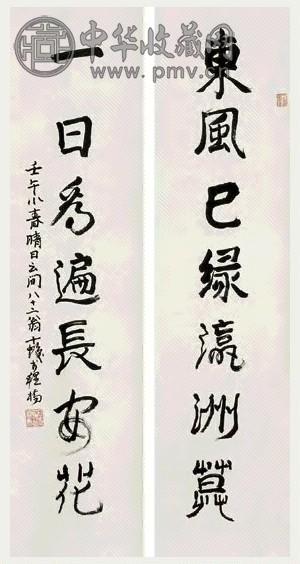 中华收藏网
www.pmv.cn
東風已緑瀛洲草
一日看遍長安花
壬午小春晴日云间八十二翁十髮书程